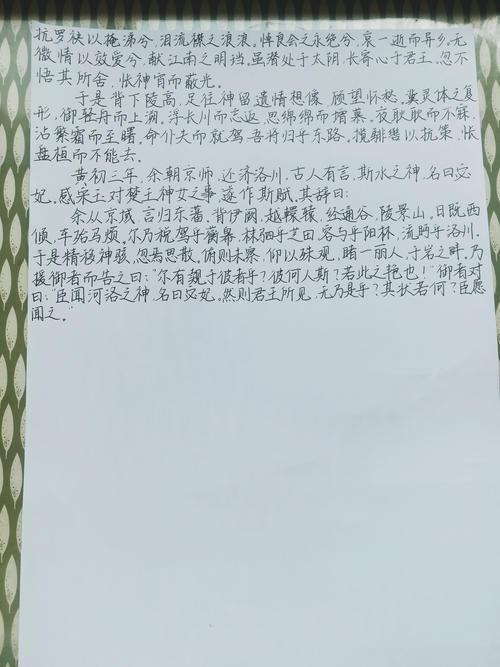 抗罗袂以掩涕兮，泪流襟之浪浪。悼良会之永绝兮，哀一逝而异乡。无
微情以效爱兮，献江南之明珰。虽潜处于太阴，长寄心于君王。忽不
悟其所舍，怅神宵而蔽光。
于是背下陵高，足往神留遗情想像，顾望怀愁。冀灵体之复
形，御轻舟而上溯。浮长川而忘返，思绵绵而增慕。夜耿耿而不寐，
沾繁霜而至曙。命仆夫而就驾吾将归乎东路。揽騑辔以抗策，怅
盘桓而不能去。
黄初三年，余朝京师，还济洛川。古人有言，斯水之神，名曰宓
妃。感宋玉对楚王神女之事，遂作斯赋，其辞曰：
余从京域，言归东藩，背伊阙，越轘辕，经通谷，陵景山。日既西
倾，车殆马烦。尔乃税驾乎蘅皋，秣驷乎芝田，容与乎阳林，流眄乎洛川。
于是精移神骇，忽焉思散。俯则未察，仰以殊观。睹一丽人，于岩之畔。乃
援御者而告之曰："尔有觌于彼者乎？彼何人斯？若此之艳也！"御者对
曰："臣闻河洛之神，名曰宓妃。然则君王所见，无乃是乎？其状若何？臣愿
闻之。"